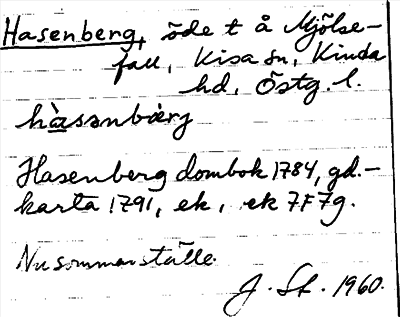 Hasenberg, öde t å Mjölse-
fall, Kisa sn, Kinda
hd, Östg. l.
hàsənbærj
Hasenberg dombok 1784, gd.-
karta 1791, ek, ek 7F7g.
Nu sommarställe.
J. St. 1960.